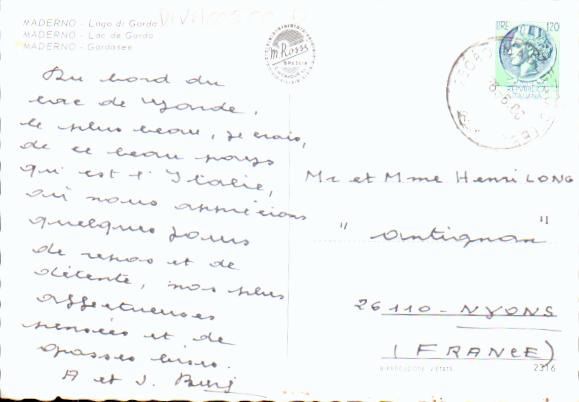 MADERNO - Lago di Garda
MADERNO - Lac de Garda
MADERNO - Gardasee
m. Ross
BRESCIA
LIRE 120
ITALIANA
Au bord du
lac de Garde,
le plus beau, je crois,
de ce beau pays
qui est l'Italie,
où nous apprécions
quelques jours
de repos et de
détente, nos plus
affectueuses
pensées et de
grosses bises.
A et J.
Mr et Mme Henri LONG
"antignan"
26110 - NYONS
(FRANCE)
RIPRODUZIONE VIETATA
2316